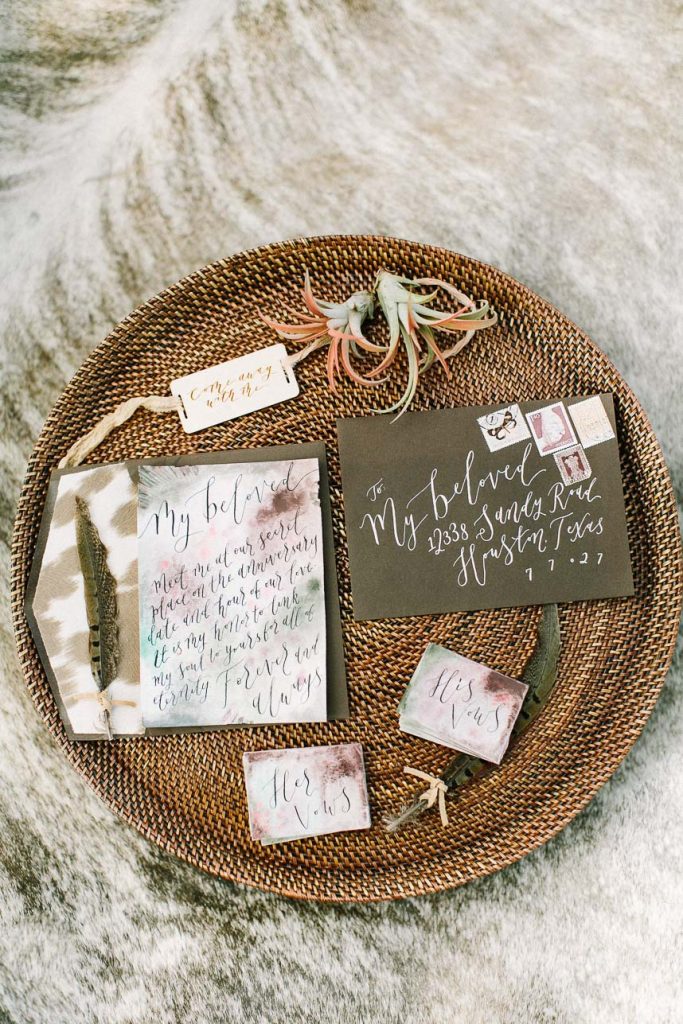 Come away
with me
My beloved
Meet me at our secret
place on the anniversary
date and hour of our love
It is my honor to link
my soul to yours for all of
eternity Forever and
always
To:
My beloved
12338 Sandy Road
Houston, Texas
77027
His
Vows
Her
Vows